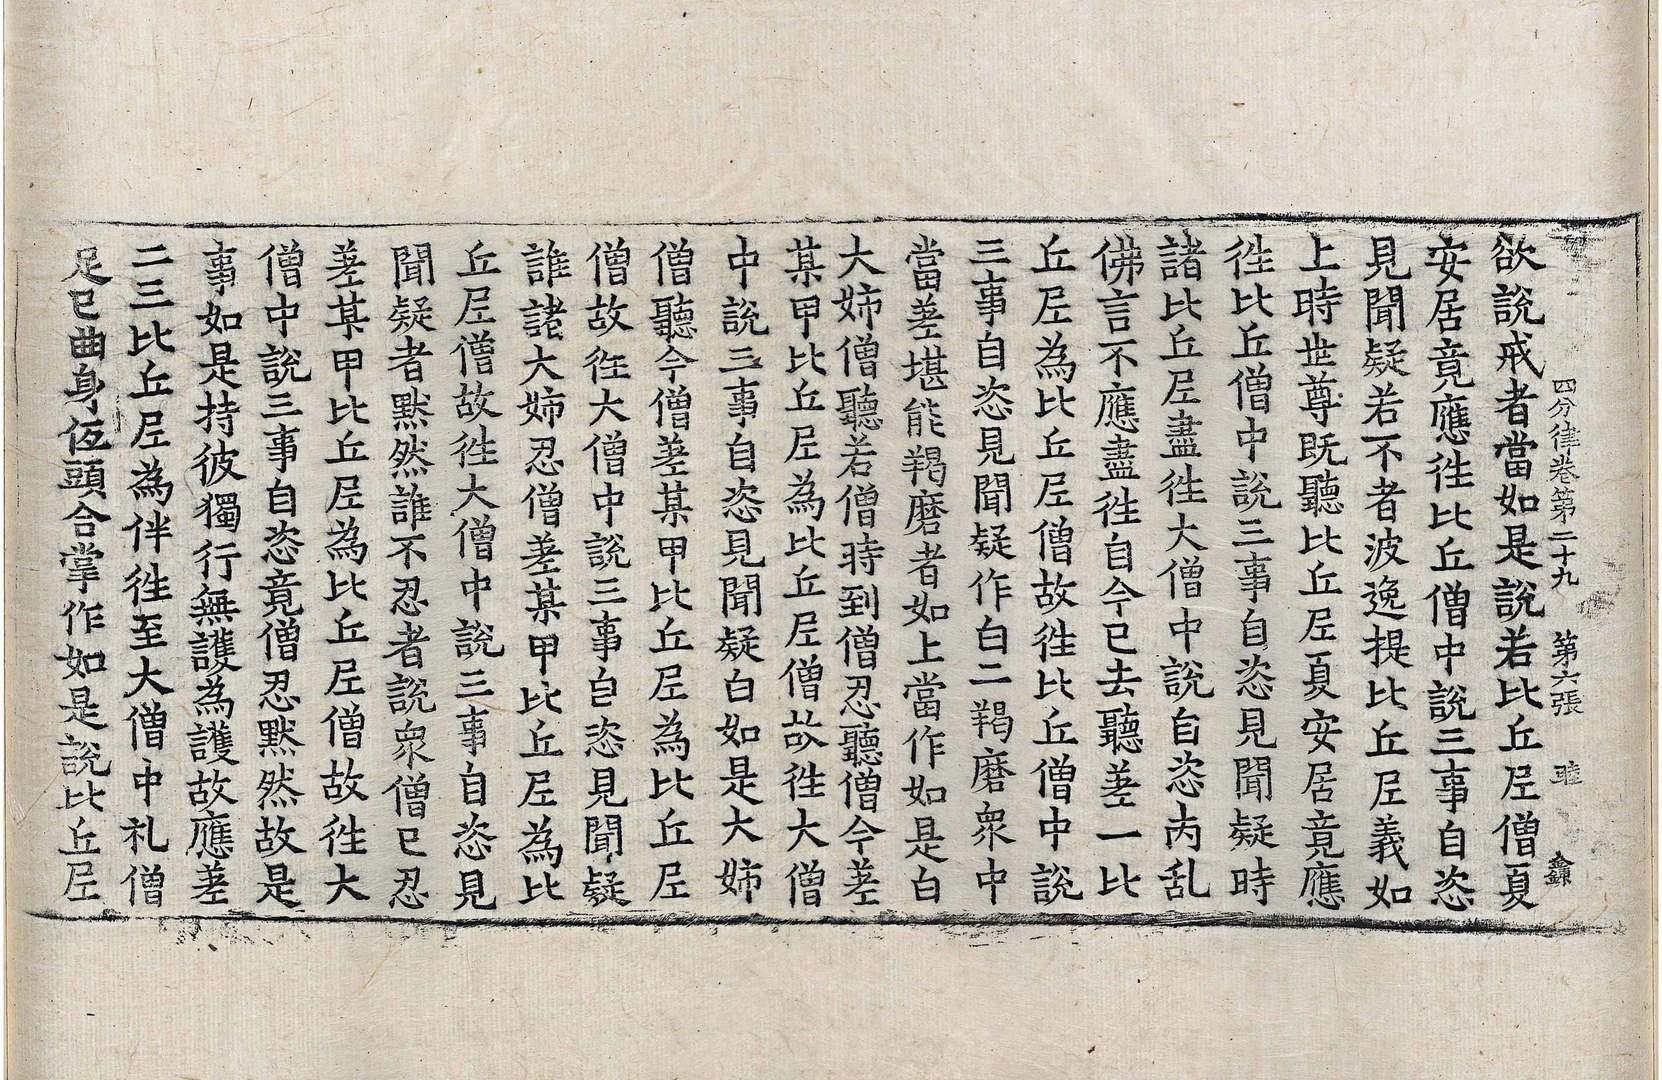 四分律卷第二十九　第六張　睦　鐮
欲說戒者當如是說若比丘尼僧夏
安居竟應徃比丘僧中說三事自恣
見聞疑若不者波逸提比丘尼義如
上時世尊既聽比丘尼夏安居竟應
徃比丘僧中說三事自恣見聞疑時
諸比丘尼盡徃大僧中說自恣内乱
佛言不應盡徃自今已去聽差一比
丘尼為比丘尼僧故徃比丘僧中說
三事自恣見聞疑作白二羯磨衆中
當差堪能羯磨者如上當作如是白
大姊僧聽若僧時到僧忍聽僧今差
某甲比丘尼為比丘尼僧故徃大僧
中說三事自恣見聞疑白如是大姊
僧聽今僧差某甲比丘尼為比丘尼
僧故徃大僧中說三事自恣見聞疑
誰諸大姊忍僧差某甲比丘尼為比
丘尼僧故徃大僧中說三事自恣見
聞疑者黙然誰不忍者說衆僧已忍
差某甲比丘尼為比丘尼僧故徃大
僧中說三事自恣竟僧忍黙然故是
事如是持彼獨行無護為護故應差
二三比丘尼為伴徃至大僧中礼僧
足已曲身仾頭合掌作如是說比丘尼